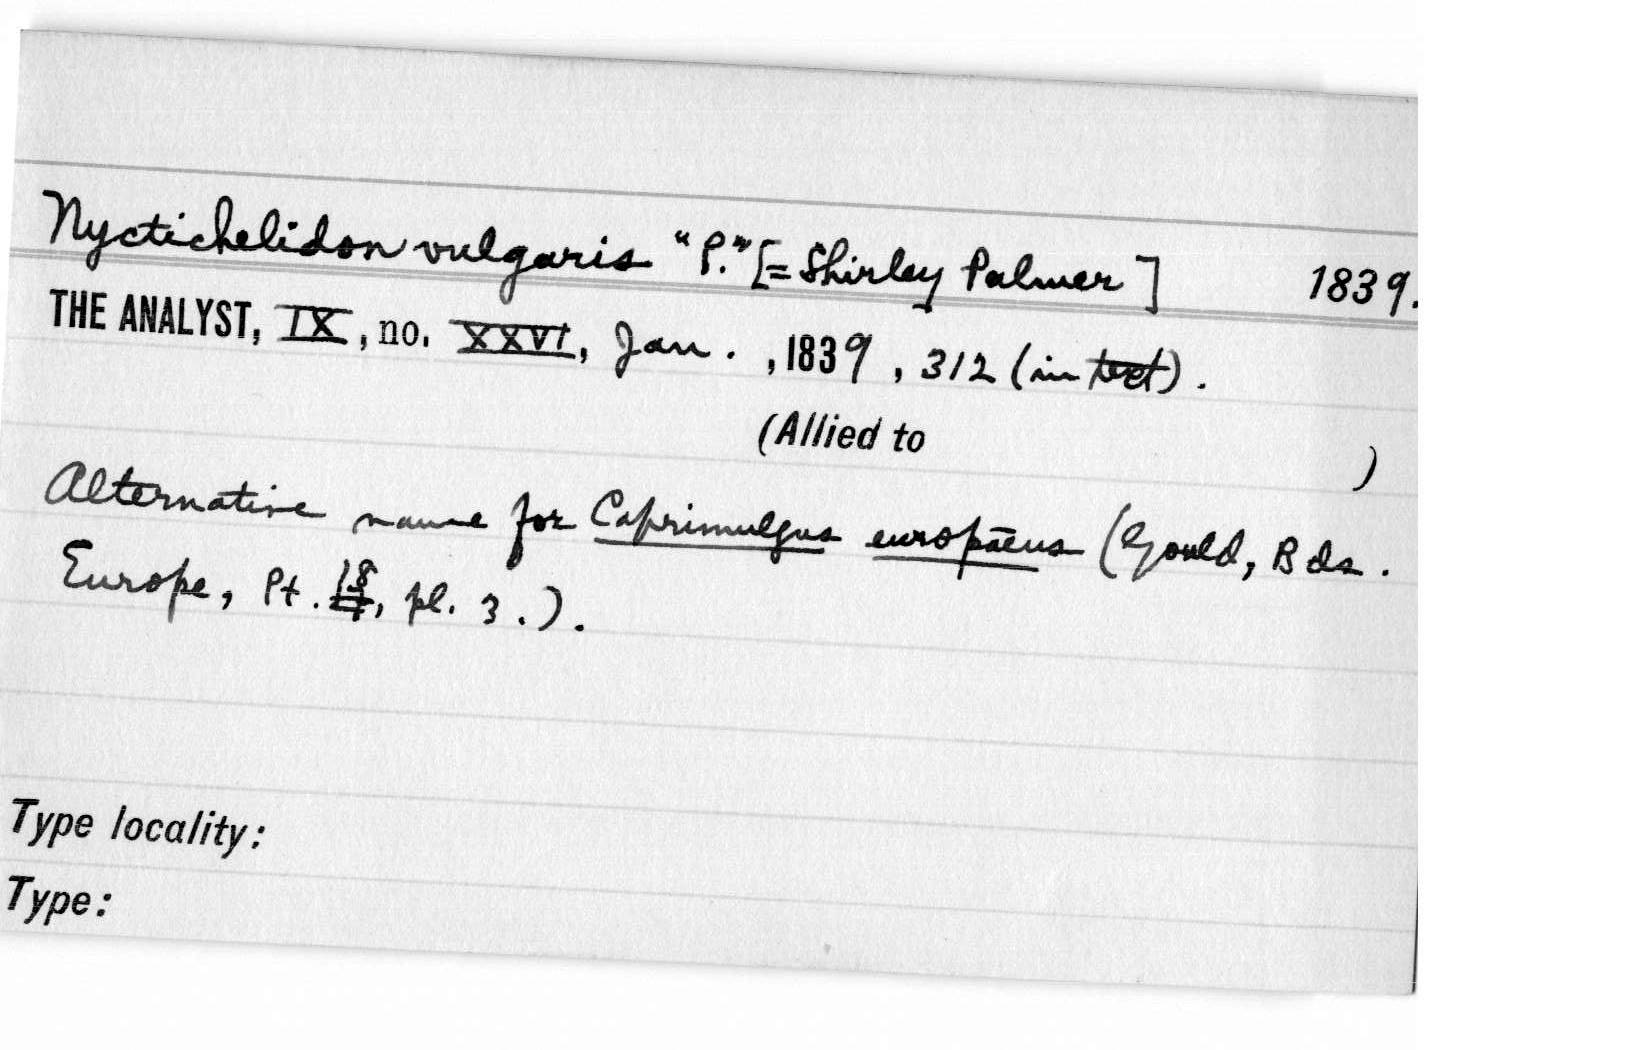 Nyctichelidon vulgaris "P." [= Shirley Palmer] 1839.
THE ANALYST, IX, no. XXVI, Jan. , 1839 , 312 (in text).
(Allied to )
Alternative name for Caprimulgus europaeus (Gould, Bds.
Europe, Pt. 18, pl. 3.).
Type locality:
Type: